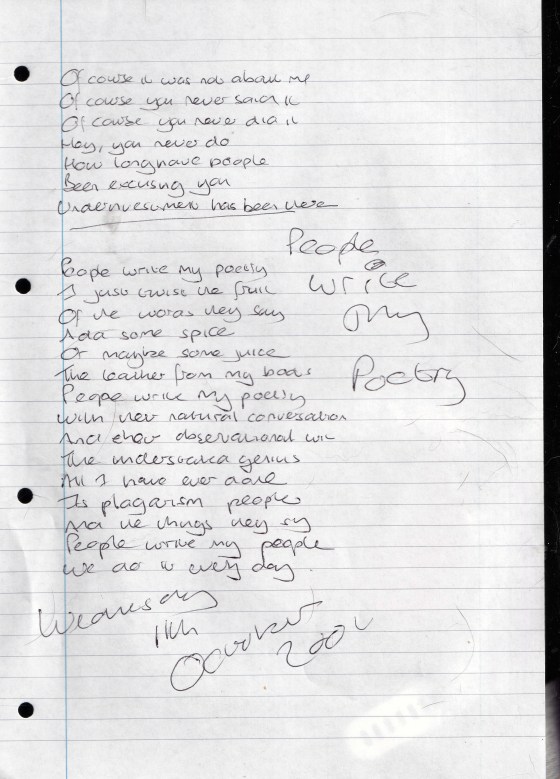 Of course it was not about me
Of course you never said it
Of course you never did it
Hey, you never do
How long have people
Been excusing you
Underinvestment has been here
People
Write
My
Poetry
People write my poetry
I just twist the fruit
Of the words they say
Add some spice
Or maybe some juice
The leather from my boots
People write my poetry
With their natural conversation
And their observational wit
The understated genius
All I have ever done
Is plagarism people
And the things they say
People write my people
We do it every day
Wednesday
11th
October